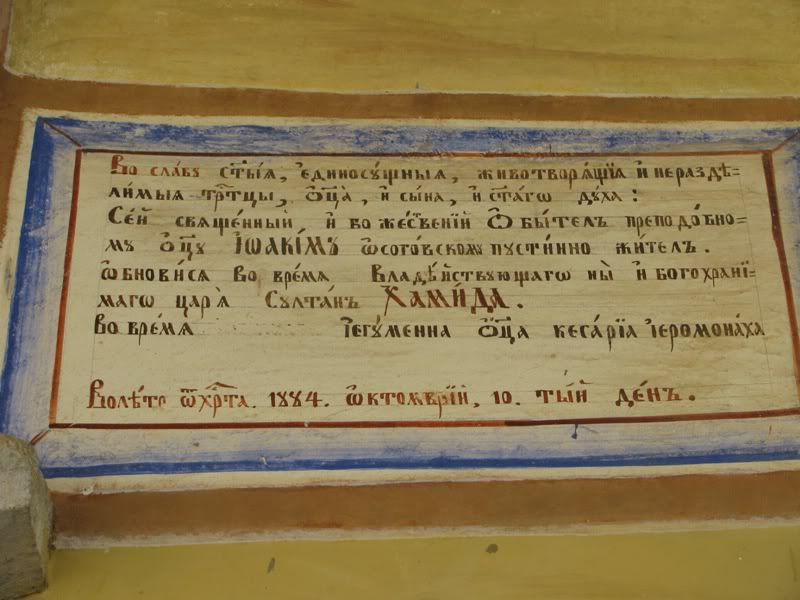 Во сла́вꙋ ст҃ы́ѧ, є҆диносꙋ́щныѧ, животворѧ́щїѧ и҆ неразд̾ѣ-
ли́мыѧ трⷪ҇тцы, ѻ҆ц҃а̀, и҆ сы́на, и҆ ст҃а́гѡ дꙋ́ха:
Се́й свяще́нный и҆ божес́твенїй ѻ҆бы́тель преподо́бно=
мꙋ ѻ҆ц҃ꙋ І҆ѡаки́мꙋ ѡ҆сого́вскомꙋ пꙋсти́нно жи́тель.
ѡ҆бнови́сѧ Во вре́мѧ Владѣ́йствꙋющагѡ ны̀ и҆ богохранї́=
магѡ царѧ̀ Сꙋлта́нъ ХАМИ́ДА.
Во вре́мѧ І҆гꙋ́менна ѻ҆ц҃а кеса́рїа І҆еромона́ха
Волѣ́то ѿхрⷭ҇та. 1884. ѡ҆ктомврі́й, 10. ты́й де́нъ.